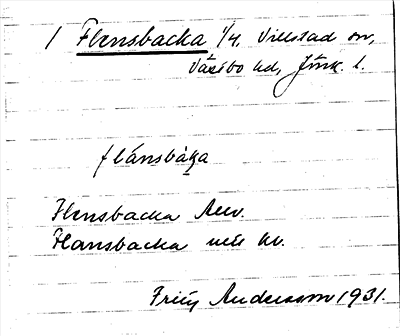 1 Flensbacka 1/4, Villstad sn,
Västbo hd, Jönk. l.
flánsbàka
Flensbacka
Flansbacka
Fritz Andersson 1931.